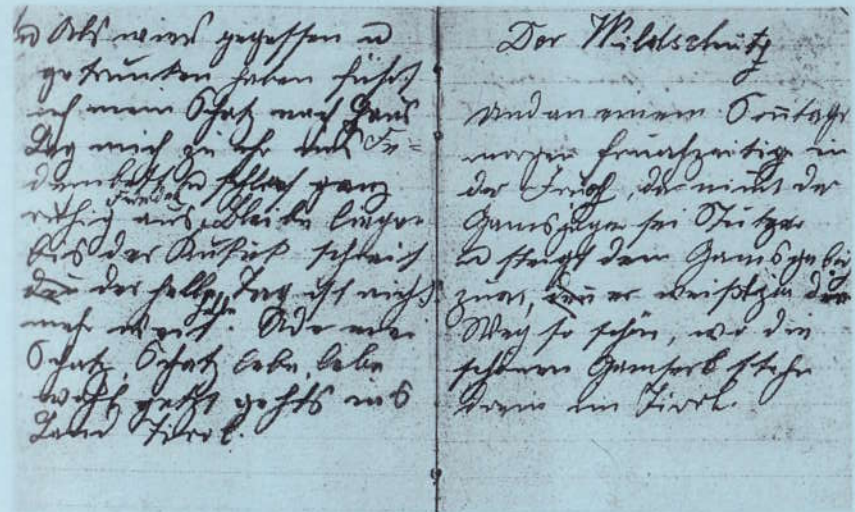 u Als wirs gegessen u
getrunken haben führt
ich mein Schatz nach Haus
Leg mich zu ihr ins Fe=
dernbett u schlaf ganz
ruhig aus, Bleibe liegen
bis der Kukuk schreit
den der helle Tag ist nicht
mehr weit. Ade mei
Schatz, Schatz lebe, lebe
wohl jetzt gehts ins
Land Tirol.
Der Wildschütz
Und an einem Sontage
morgen fruahzeitig in
der Fruah, da nimt der
Gamsjäger sei Stutzer
u steigt dem Gamsgebir
zua, den er weißt ja den
Weg so schön, wo die
schönen Gamserl stehn
drein im Tirol.